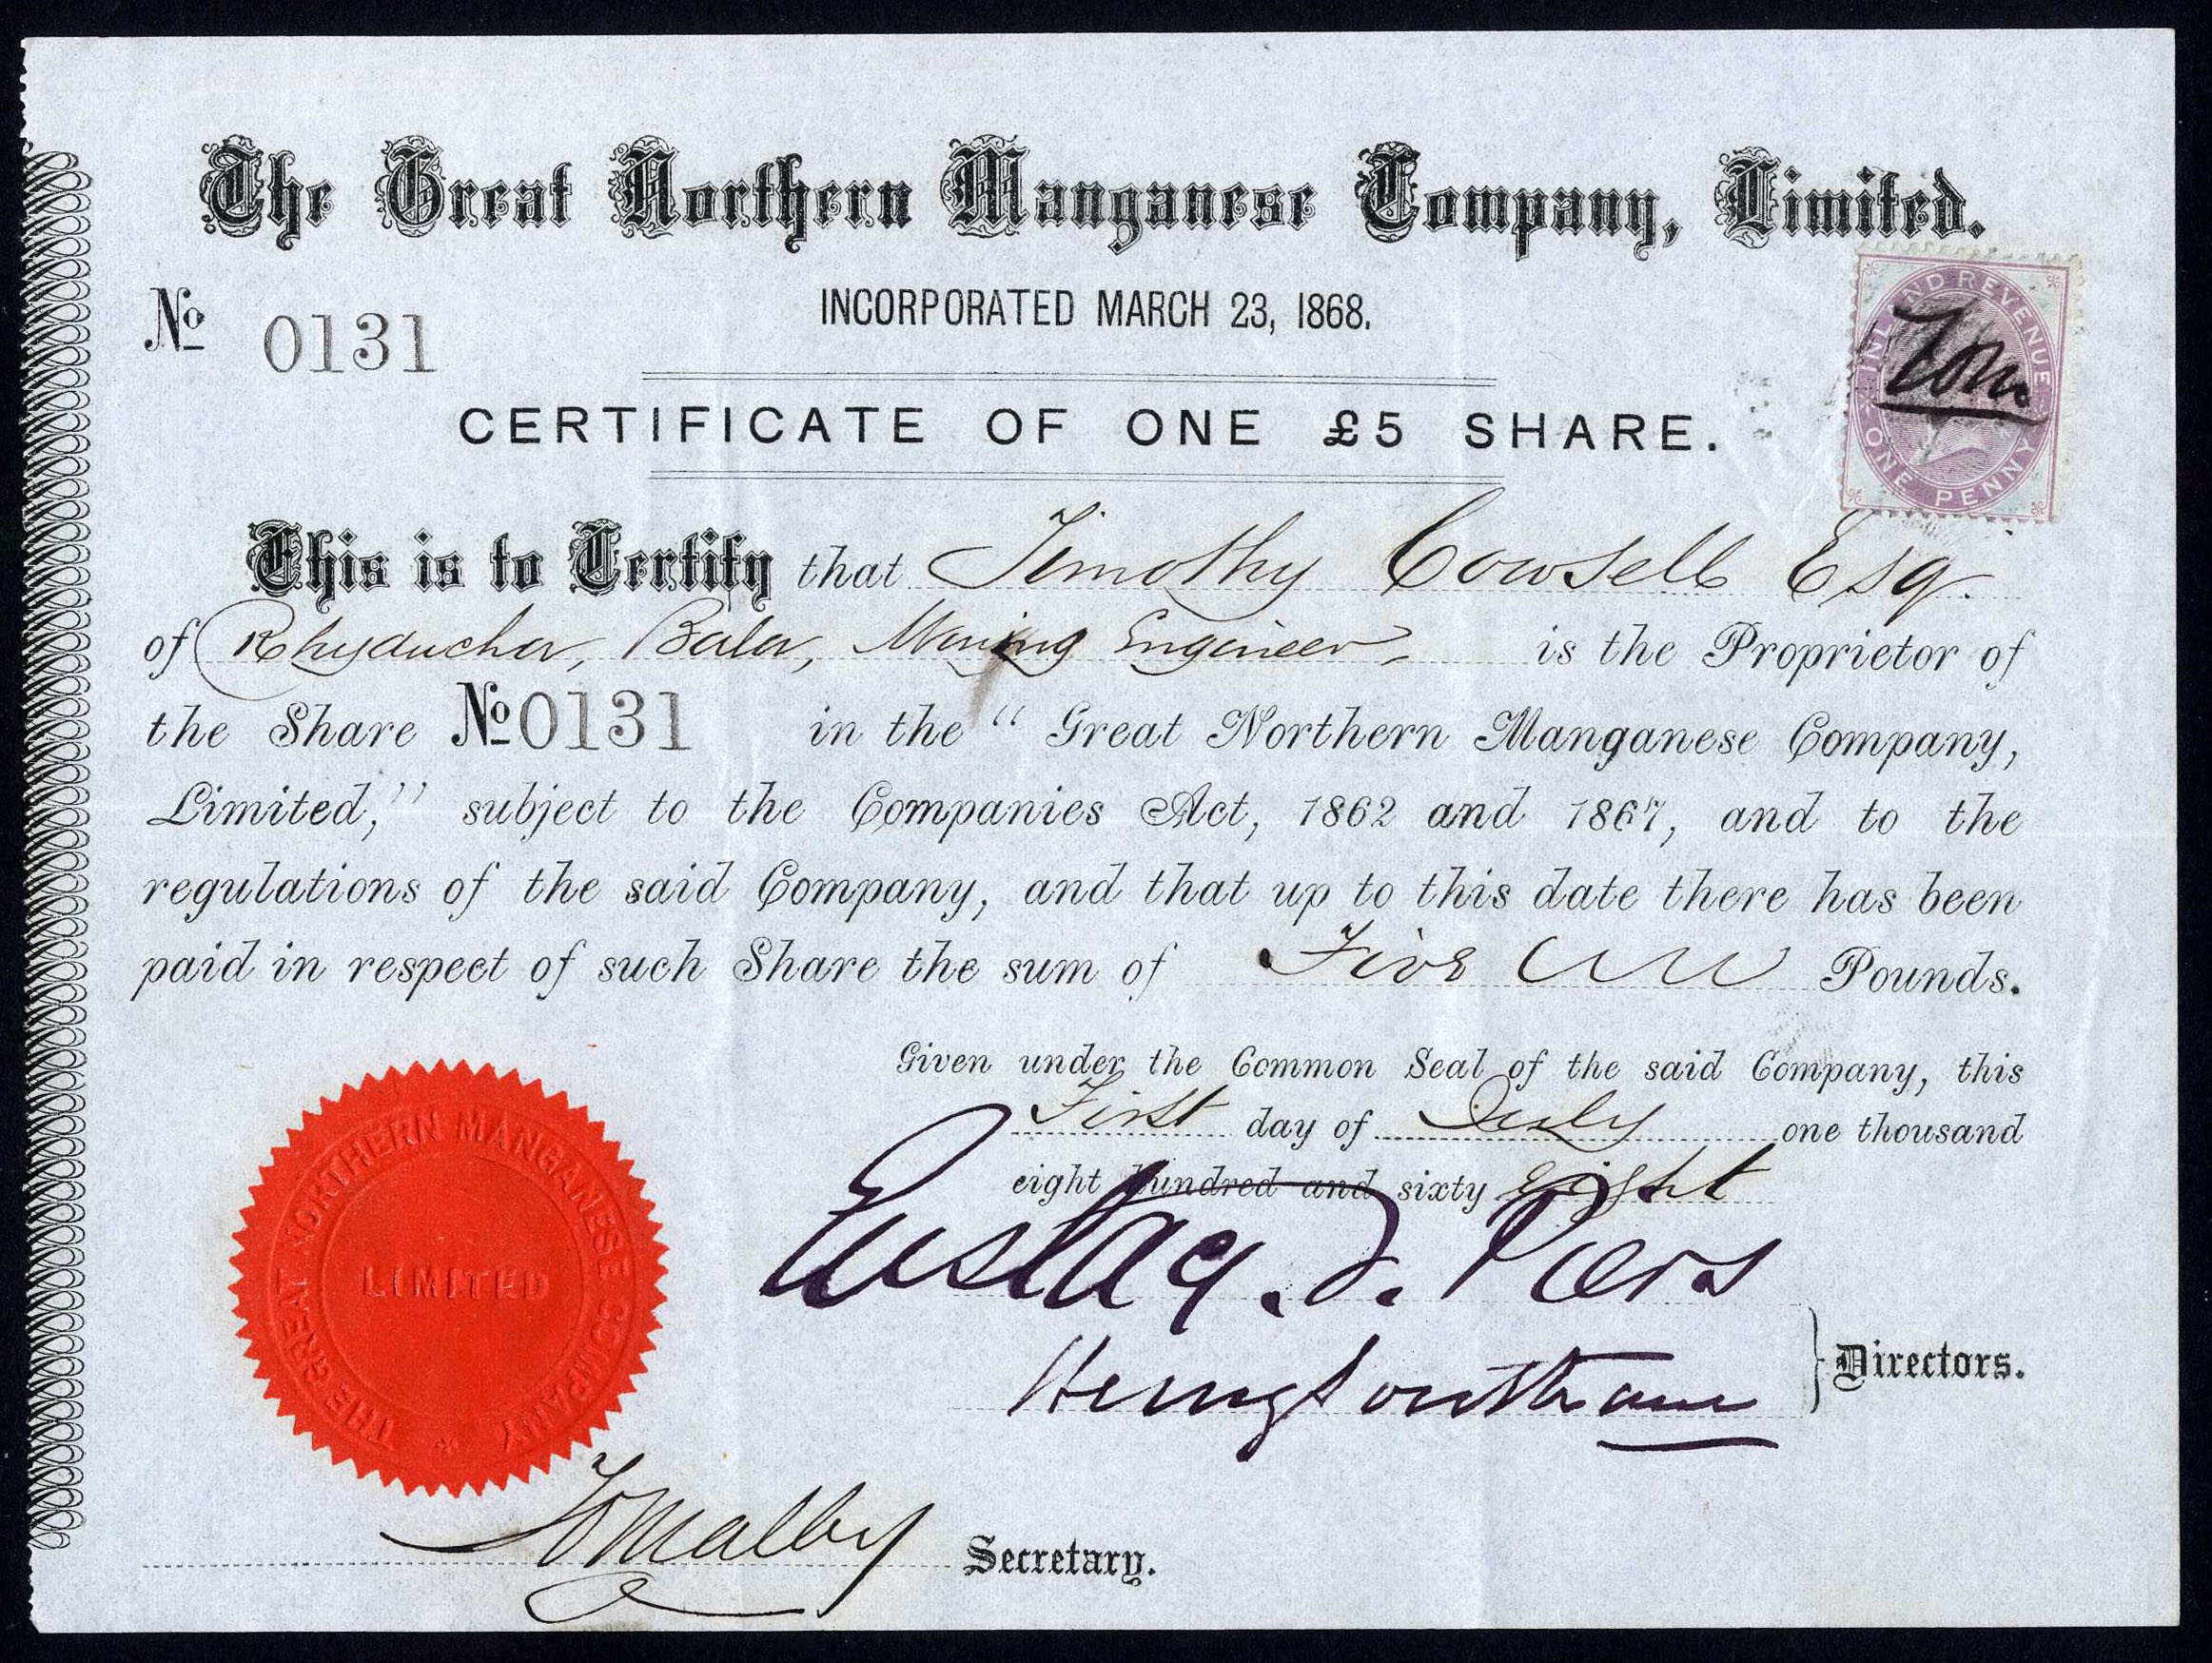 The Great Northern Manganese Company, Limited.
INLAND REVENUE
ONE PENNY
No 0131
INCORPORATED MARCH 23, 1868.
CERTIFICATE OF ONE £5 SHARE.
This is to Certify that Timothy Cowsell Esq.
of Rhyducha, Bala, Mining Engineer, is the Proprietor of
the Share No 0131 in the "Great Northern Manganese Company,
Limited," subject to the Companies Act, 1862 and 1867, and to the
regulations of the said Company, and that up to this date there has been
paid in respect of such Share the sum of Five Pounds.
Given under the Common Seal of the said Company, this
First day of July one thousand
eight hundred and sixty eight
THE GREAT NORTHERN MANGANESE COMPANY
LIMITED
Directors.
Malby Secretary.